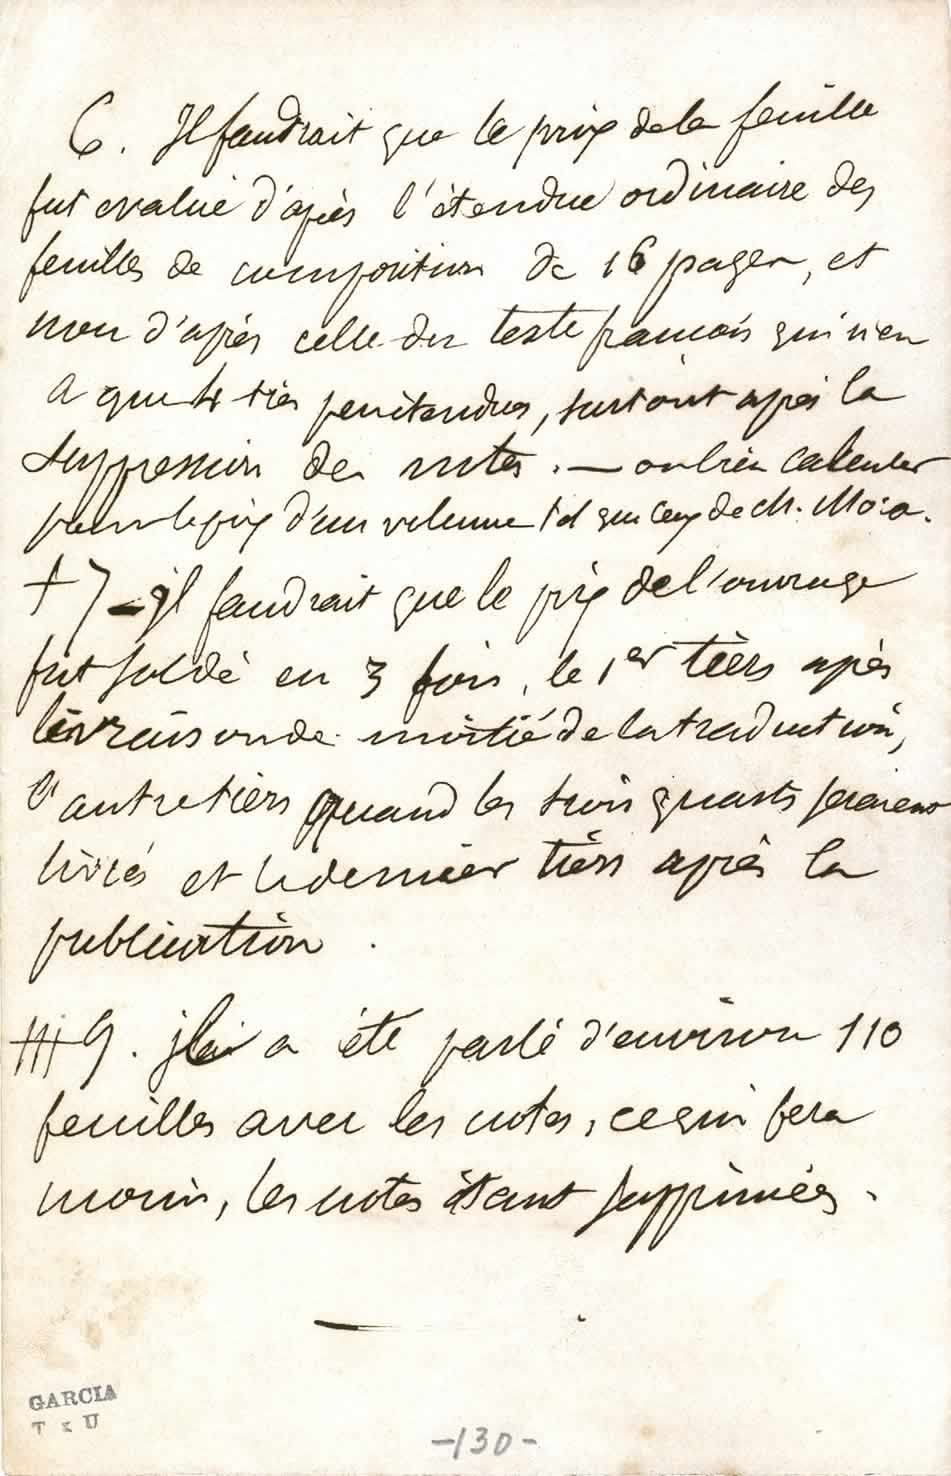 6. Il faudrait que le prix de la feuille
fut evalué d'après l'étendue ordinaire des
feuilles de composition de 16 pages, et
non d'après celle du texte français qui n'en
a que 4 très peu étendues, surtout après la
suppression des notes. — ou bien calculer
pour le prix d'un volume tel que ceux de M.
+ 7 - il faudrait que le prix de l'ouvrage
fut soldé en 3 fois, le 1er tiers après
livraison de moitié de la traduction,
l'autre tiers quand les trois quarts seraient
livrés et le dernier tiers après la
publication.
9. a été parlé d'environ 110
feuilles avec les notes, ce qui fera
moins, les notes étant supprimées.
GARCIA
-130-